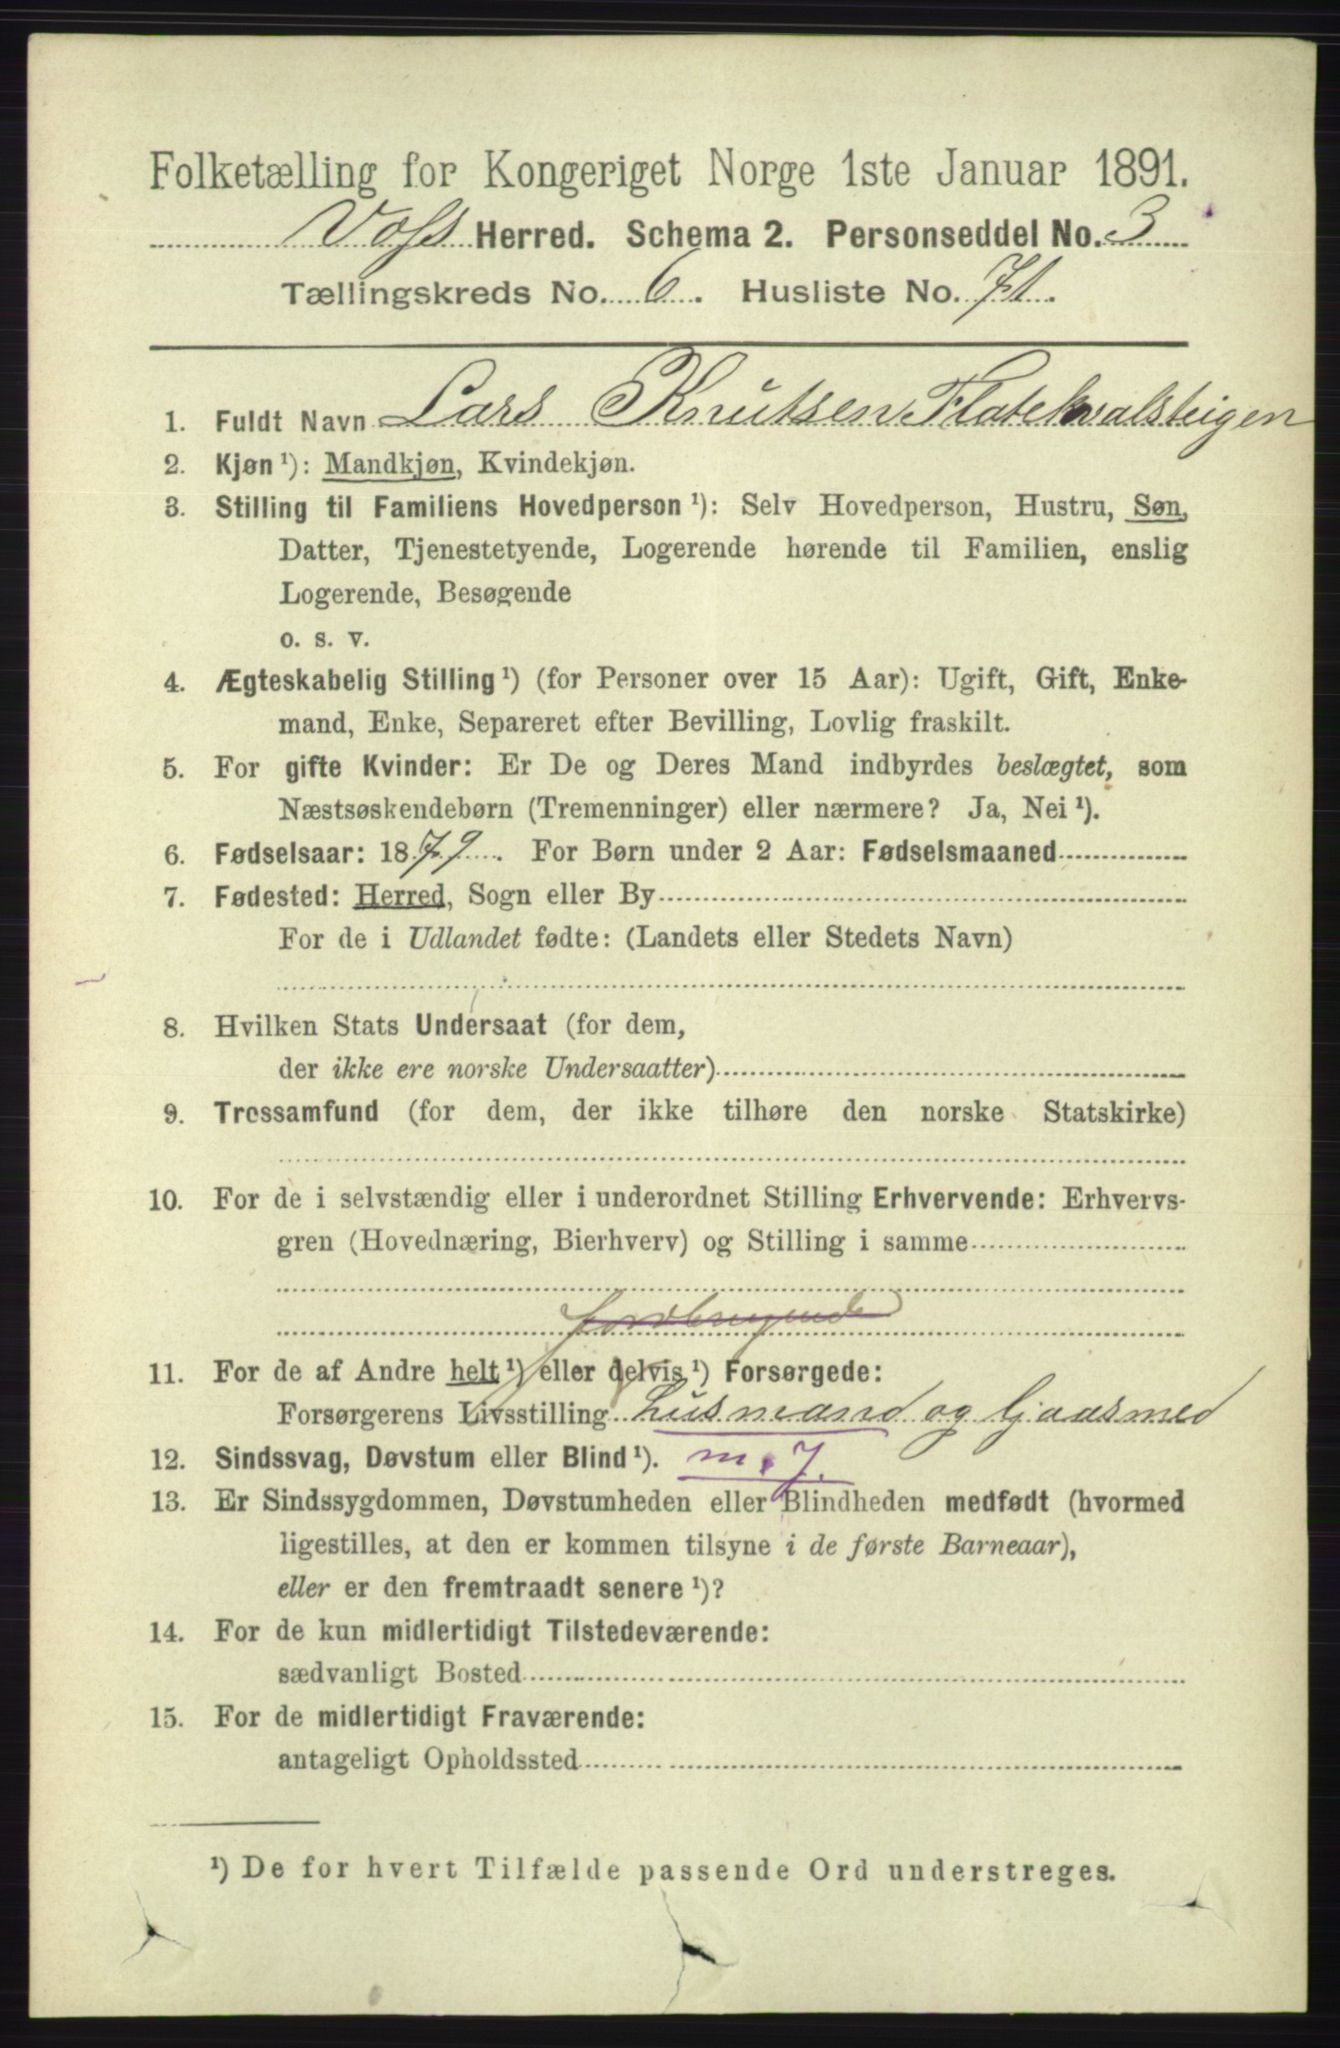 Folketælling for Kongeriget Norge 1ste Januar 1891.
Voss Herred. Schema 2. Personseddel No. 3
Tællingskreds No. 6. Husliste No. 71.
1. Fuldt Navn Lars Knutsen Flatekvalsteigen
2. Kjøn ¹): Mandkjøn, Kvindekjøn.
3. Stilling til Familiens Hovedperson ¹): Selv Hovedperson, Hustru, Søn,
Datter, Tjenestetyende, Logerende hørende til Familien, enslig
Logerende, Besøgende
o. s. v.
4. Ægteskabelig Stilling ¹) (for Personer over 15 Aar): Ugift, Gift, Enke-
mand, Enke, Separeret efter Bevilling, Lovlig fraskilt.
5. For gifte Kvinder: Er De og Deres Mand indbyrdes beslægtet, som
Næstsøskendebørn (Tremenninger) eller nærmere? Ja, Nei ¹).
6. Fødselsaar: 1879. For Børn under 2 Aar: Fødselsmaaned
7. Fødested: Herred, Sogn eller By
For de i Udlandet fødte: (Landets eller Stedets Navn)
8. Hvilken Stats Undersaat (for dem,
der ikke ere norske Undersaatter)
9. Trossamfund (for dem, der ikke tilhøre den norske Statskirke)
10. For de i selvstændig eller i underordnet Stilling Erhvervende: Erhvervs-
gren (Hovednæring, Bierhverv) og Stilling i samme
11. For de af Andre helt ¹) eller delvis ¹) Forsørgede:
Forsørgerens Livsstilling Husmand og Gaasmed
12. Sindssvag, Døvstum eller Blind ¹). m. 7.
13. Er Sindssygdommen, Døvstumheden eller Blindheden medfødt (hvormed
ligestilles, at den er kommen tilsyne i de første Barneaar),
eller er den fremtraadt senere ¹)?
14. For de kun midlertidigt Tilstedeværende:
sædvanligt Bosted
15. For de midlertidigt Fraværende:
antageligt Opholdssted
¹) De for hvert Tilfælde passende Ord understreges.